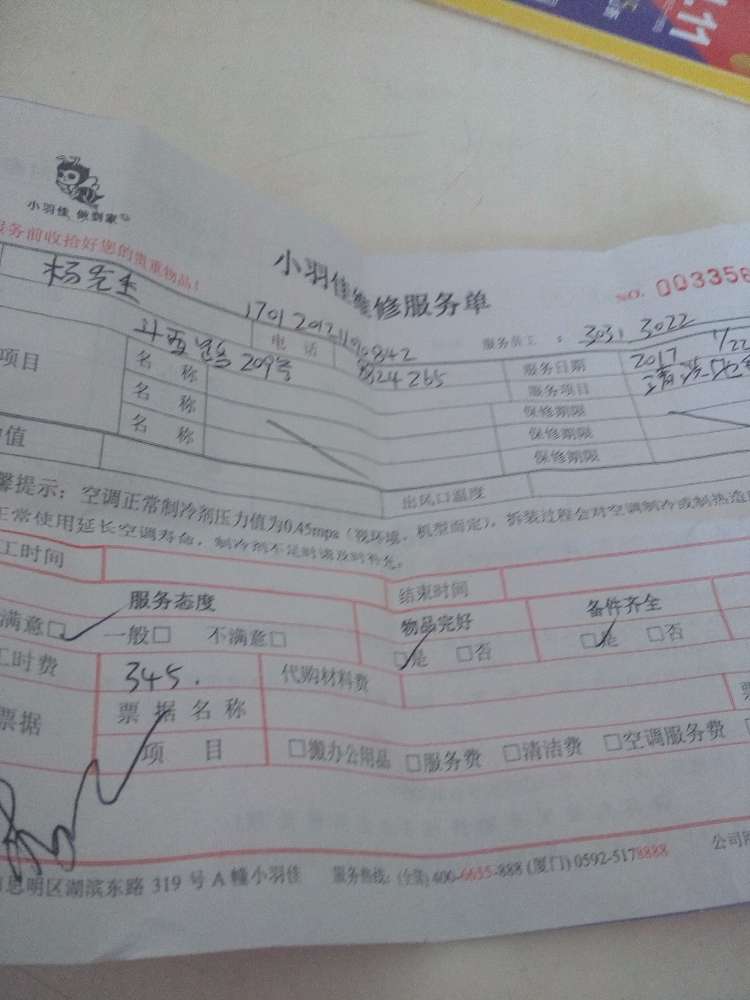 .11
小羽佳 做到家
服务前收拾好您的贵重物品!
小羽佳维修服务单
NO. 003358
杨先生
17012012
电 话
842
824265
服务员工 : 3031 3022
斗西路209号
服务日期
2017 1/22
项目
名 称
服务项目
清洗
名 称
保修期限
名 称
保修期限
保修期限
值
出风口温度
馨提示: 空调正常制冷剂压力值为0.45mpa (视环境、机型而定), 拆装过程会对空调制冷或制热造
正常使用延长空调寿命, 制冷剂不足时请及时补充。
工时间
结束时间
服务态度
物品完好
备件齐全
满意□ 一般□ 不满意□
□是 □否
□是 □否
工时费
345.
代购材料费
票据
票 据 名 称
项 目
□搬办公用品 □服务费 □清洁费 □空调服务费
思明区湖滨东路 319 号 A 幢小羽佳
服务热线: (全国) 400-6655-888 (厦门) 0592-5178888
公司